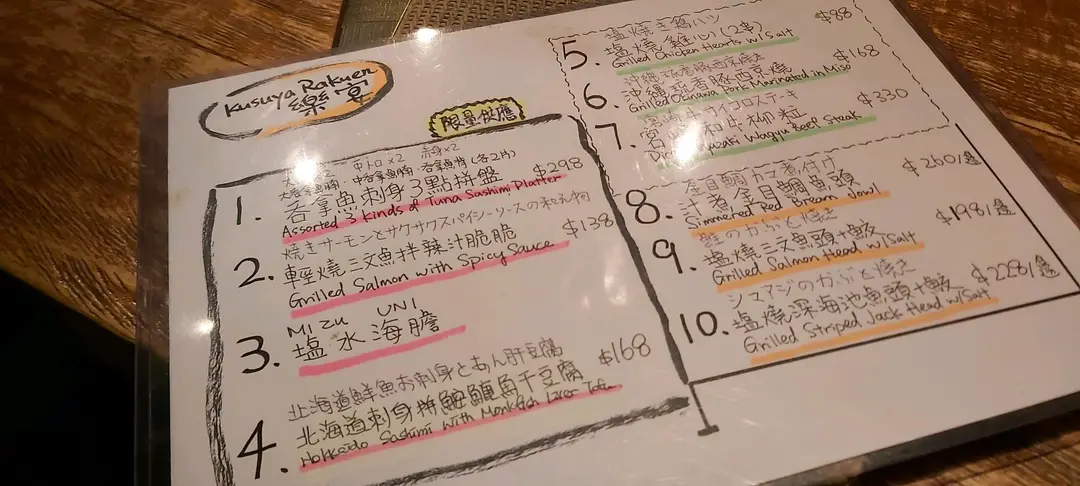 Kusuya Rakuen
樂宴
限量供應
中トロ×2 赤身×2
1. 吞拿魚刺身3點拼盤 $298
Assorted 3 Kinds of Tuna Sashimi Platter
焼きサーモンとサクサクスパイシーソースの和え物
2. 輕燒三文魚拌辣汁脆脆 $138
Grilled Salmon with Spicy Sauce
MIZU UNI
3. 塩水海膽
北海道鮮魚お刺身とあん肝豆腐 $168
4. 北海道刺身拼鮟鱇魚干豆腐
Hokkaido Sashimi with Monkfish Liver Tofu
5. 塩燒雞心(2串) $88
Grilled Chicken Hearts w/Salt
6. 沖繩琉香豚西京燒 $168
Grilled Okinawa Pork Marinated in Miso
7. 宮崎和牛柳粒 $330
Wagyu Beef Steak
金目鯛カマ煮付け $260/
8. 汁煮金目鯛魚頭
Simmered Red Bream Jowl
鮭のかぶと焼き $198/
9. 塩燒三文魚頭+鮫
Grilled Salmon Head w/Salt
シマアジのかぶと焼き $228/
10. 塩燒深海池魚頭+鮫
Grilled Striped Jack Head w/Salt